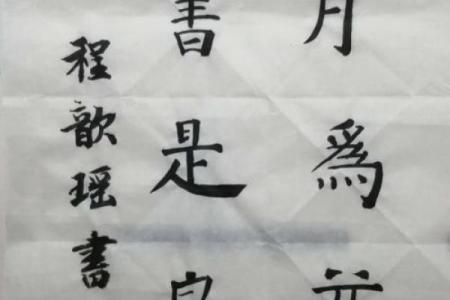 月為
書是
程歆瑶書